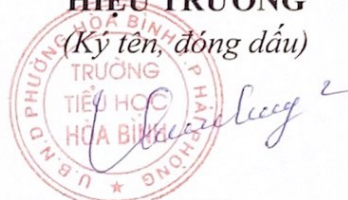 HIỆU TRƯỞNG
(Ký tên, đóng dấu)
U.B.N.D PHƯỜNG HÒA BÌNH T.P HẢI PHÒNG
TRƯỜNG
TIỂU HỌC
HÒA BÌNH